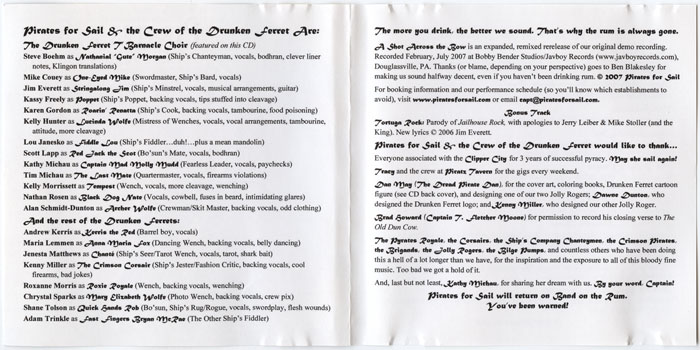 Pirates for Sail & the Crew of the Drunken Ferret Are:
The Drunken Ferret T Barnacle Choir (featured on this CD)
Steve Boehm as Nathanial "Guts" Morgan (Ship's Chanteyman, vocals, bodhran, clever liner
notes, Klingon translations)
Mike Couey as One-Eyed Mike (Swordmaster, Ship's Bard, vocals)
Jim Everett as Stringalong Jim (Ship's Minstrel, vocals, musical arrangements, guitar)
Kassy Freely as Poppet (Ship's Poppet, backing vocals, tips stuffed into cleavage)
Karen Gordon as Roarin' Renata (Ship's Cook, backing vocals, tambourine, food poisoning)
Kelly Hunter as Lucinda Wolfe (Mistress of Wenches, vocals, vocal arrangements, tambourine,
attitude, more cleavage)
Lou Janesko as Fiddle Lou (Ship's Fiddler...duh!...plus a mean mandolin)
Scott Lapp as Red Jack the Scot (Bo'sun's Mate, vocals, bodhran)
Kathy Michau as Captain Mad Molly Mudd (Fearless Leader, vocals, paychecks)
Tim Michau as The Last Mate (Quartermaster, vocals, firearms violations)
Kelly Morrissett as Tempest (Wench, vocals, more cleavage, wenching)
Nathan Rosen as Black Dog Nate (Vocals, cowbell, fuses in beard, intimidating glares)
Alan Schmidt-Dunton as Archer Wolfe (Crewman/Skit Master, backing vocals, odd clothing)
And the rest of the Drunken Ferrets:
Andrew Kerris as Kerris the Red (Barrel boy, vocals)
Maria Lemmen as Anna Maria Fox (Dancing Wench, backing vocals, belly dancing)
Jenesta Matthews as Chanti (Ship's Seer/Tarot Wench, vocals, tarot, shark bait)
Kenny Miller as The Crimson Corsair (Ship's Jester/Fashion Critic, backing vocals, cool
firearms, bad jokes)
Roxanne Morris as Roxie Royale (Wench, backing vocals, wenching)
Chrystal Sparks as Mary Elizabeth Wolfe (Photo Wench, backing vocals, crew pix)
Shane Tolson as Quick Hands Rob (Bo'sun, Ship's Rug/Rogue, vocals, swordplay, flesh wounds)
Adam Trinkle as Fast Fingers Bryan McRae (The Other Ship's Fiddler)
The more you drink, the better we sound. That's why the rum is always gone.
A Shot Across the Bow is an expanded, remixed rerelease of our original demo recording.
Recorded February, July 2007 at Bobby Bender Studios/Javboy Records (www.javboyrecords.com),
Douglassville, PA. Thanks (or blame, depending on your perspective) goes to Ben Blakesley for
making us sound halfway decent, even if you haven't been drinking rum. © 2007 Pirates for Sail
For booking information and our performance schedule (so you'll know which establishments to
avoid), visit www.piratesforsail.com or email capt@piratesforsail.com.
Bonus Track
Tortuga Rock: Parody of Jailhouse Rock, with apologies to Jerry Leiber & Mike Stoller (and the
King). New lyrics © 2006 Jim Everett.
Pirates for Sail & the Crew of the Drunken Ferret would like to thank...
Everyone associated with the Clipper City for 3 years of successful pyracy. May she sail again!
Tracy and the crew at Pirates Tavern for the gigs every weekend.
Dan May (The Dread Pirate Dan), for the cover art, coloring books, Drunken Ferret cartoon
figure (see CD back cover), and designing one of our two Jolly Rogers; Dawee Dunton, who
designed the Drunken Ferret logo; and Kenny Miller, who designed our other Jolly Rogers.
Brad Howard (Captain T. Fletcher Moone) for permission to record his closing verse to The
Old Dun Cow.
The Pyrates Royale, the Corsairs, the Ship's Company Chanteymen, the Crimson Pirates,
the Brigands, the Jolly Rogers, the Bilge Pumps, and countless others who have been doing
this a hell of a lot longer than we have, for the inspiration and the exposure to all of this bloody fine
music. Too bad we got a hold of it.
And, last but not least, Kathy Michau, for sharing her dream with us. By your word, Captain!
Pirates for Sail will return on Band on the Rum.
You've been warned!